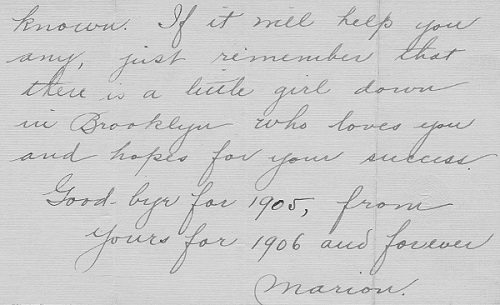 known. If it will help you
any, just remember that
there is a little girl down
in Brooklyn who loves you
and hopes for your success.
Good-bye for 1905, from
yours for 1906 and forever
Marion.